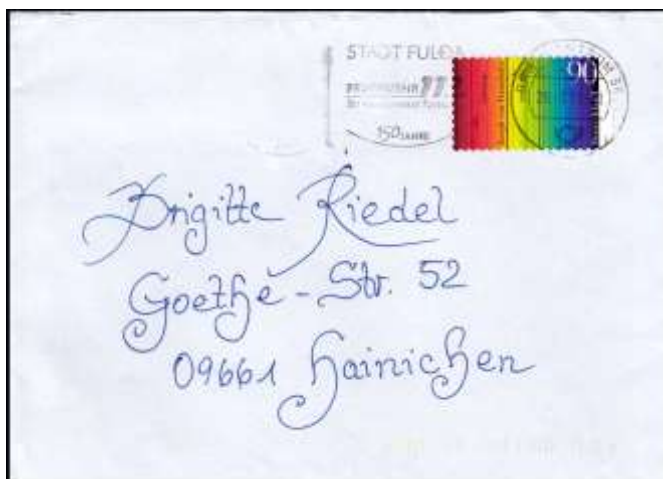 STADT FULDA
150 JAHRE
90
Brigitte Riedel
Goethe-Str. 52
09661 Hainichen